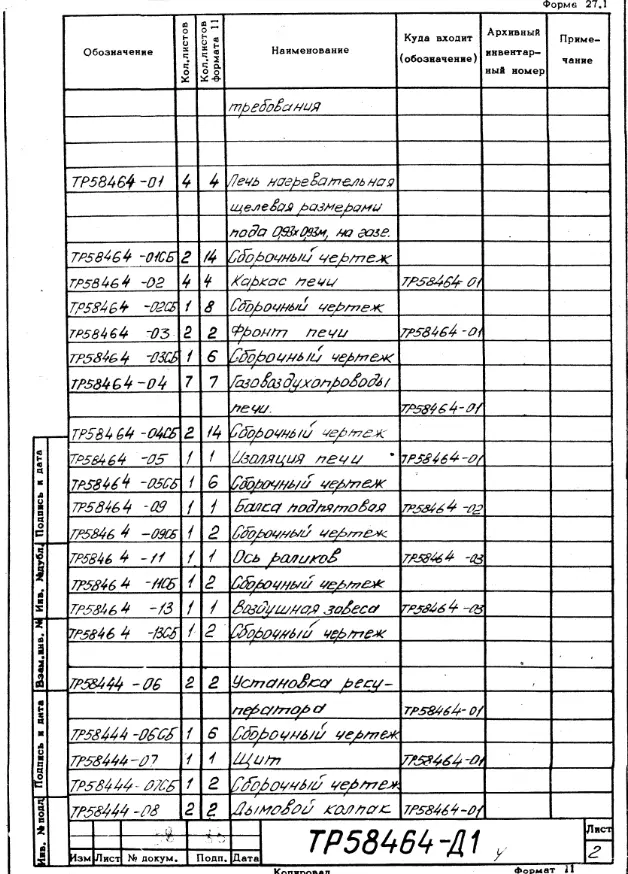 Форма 27.1
Обозначение Кол.листов Кол.листов формата 11 Наименование Куда входит (обозначение) Архивный инвентар- ный номер Приме- чание
требования
ТР58464-01 4 4 Печь нагревательная
щелевая размерами
пода 0,93х0,93м, на газе.
ТР58464-01СБ 2 14 Сборочный чертеж
ТР58464-02 4 4 Каркас печи ТР58464-01
ТР58464-02СБ 1 8 Сборочный чертеж
ТР58464-03 2 2 Фронт печи ТР58464-01
ТР58464-03СБ 1 6 Сборочный чертеж
ТР58464-04 7 7 Газовоздухопроводы
печи. ТР58464-01
ТР58464-04СБ 2 14 Сборочный чертеж
ТР58464-05 1 1 Изоляция печи ТР58464-01
ТР58464-05СБ 1 6 Сборочный чертеж
ТР58464-09 1 1 Балка подпятовая ТР58464-02
ТР58464-09СБ 1 2 Сборочный чертеж
ТР58464-11 1 1 Ось роликов ТР58464-03
ТР58464-11СБ 1 2 Сборочный чертеж
ТР58464-13 1 1 Воздушная завеса ТР58464-03
ТР58464-13СБ 1 2 Сборочный чертеж
ТР58444-06 2 2 Установка реку-
ператора ТР58464-01
ТР58444-06СБ 1 6 Сборочный чертеж
ТР58444-07 1 1 Щит ТР58464-01
ТР58444-07СБ 1 2 Сборочный чертеж
ТР58444-08 2 2 Дымовой колпак ТР58464-01
Инв. № подл. Подпись и дата Взам.инв. № Инв. № дубл. Подпись и дата
Изм Лист № докум. Подп. Дата
ТР58464-Д1
Лист
2
Копировал Формат 11